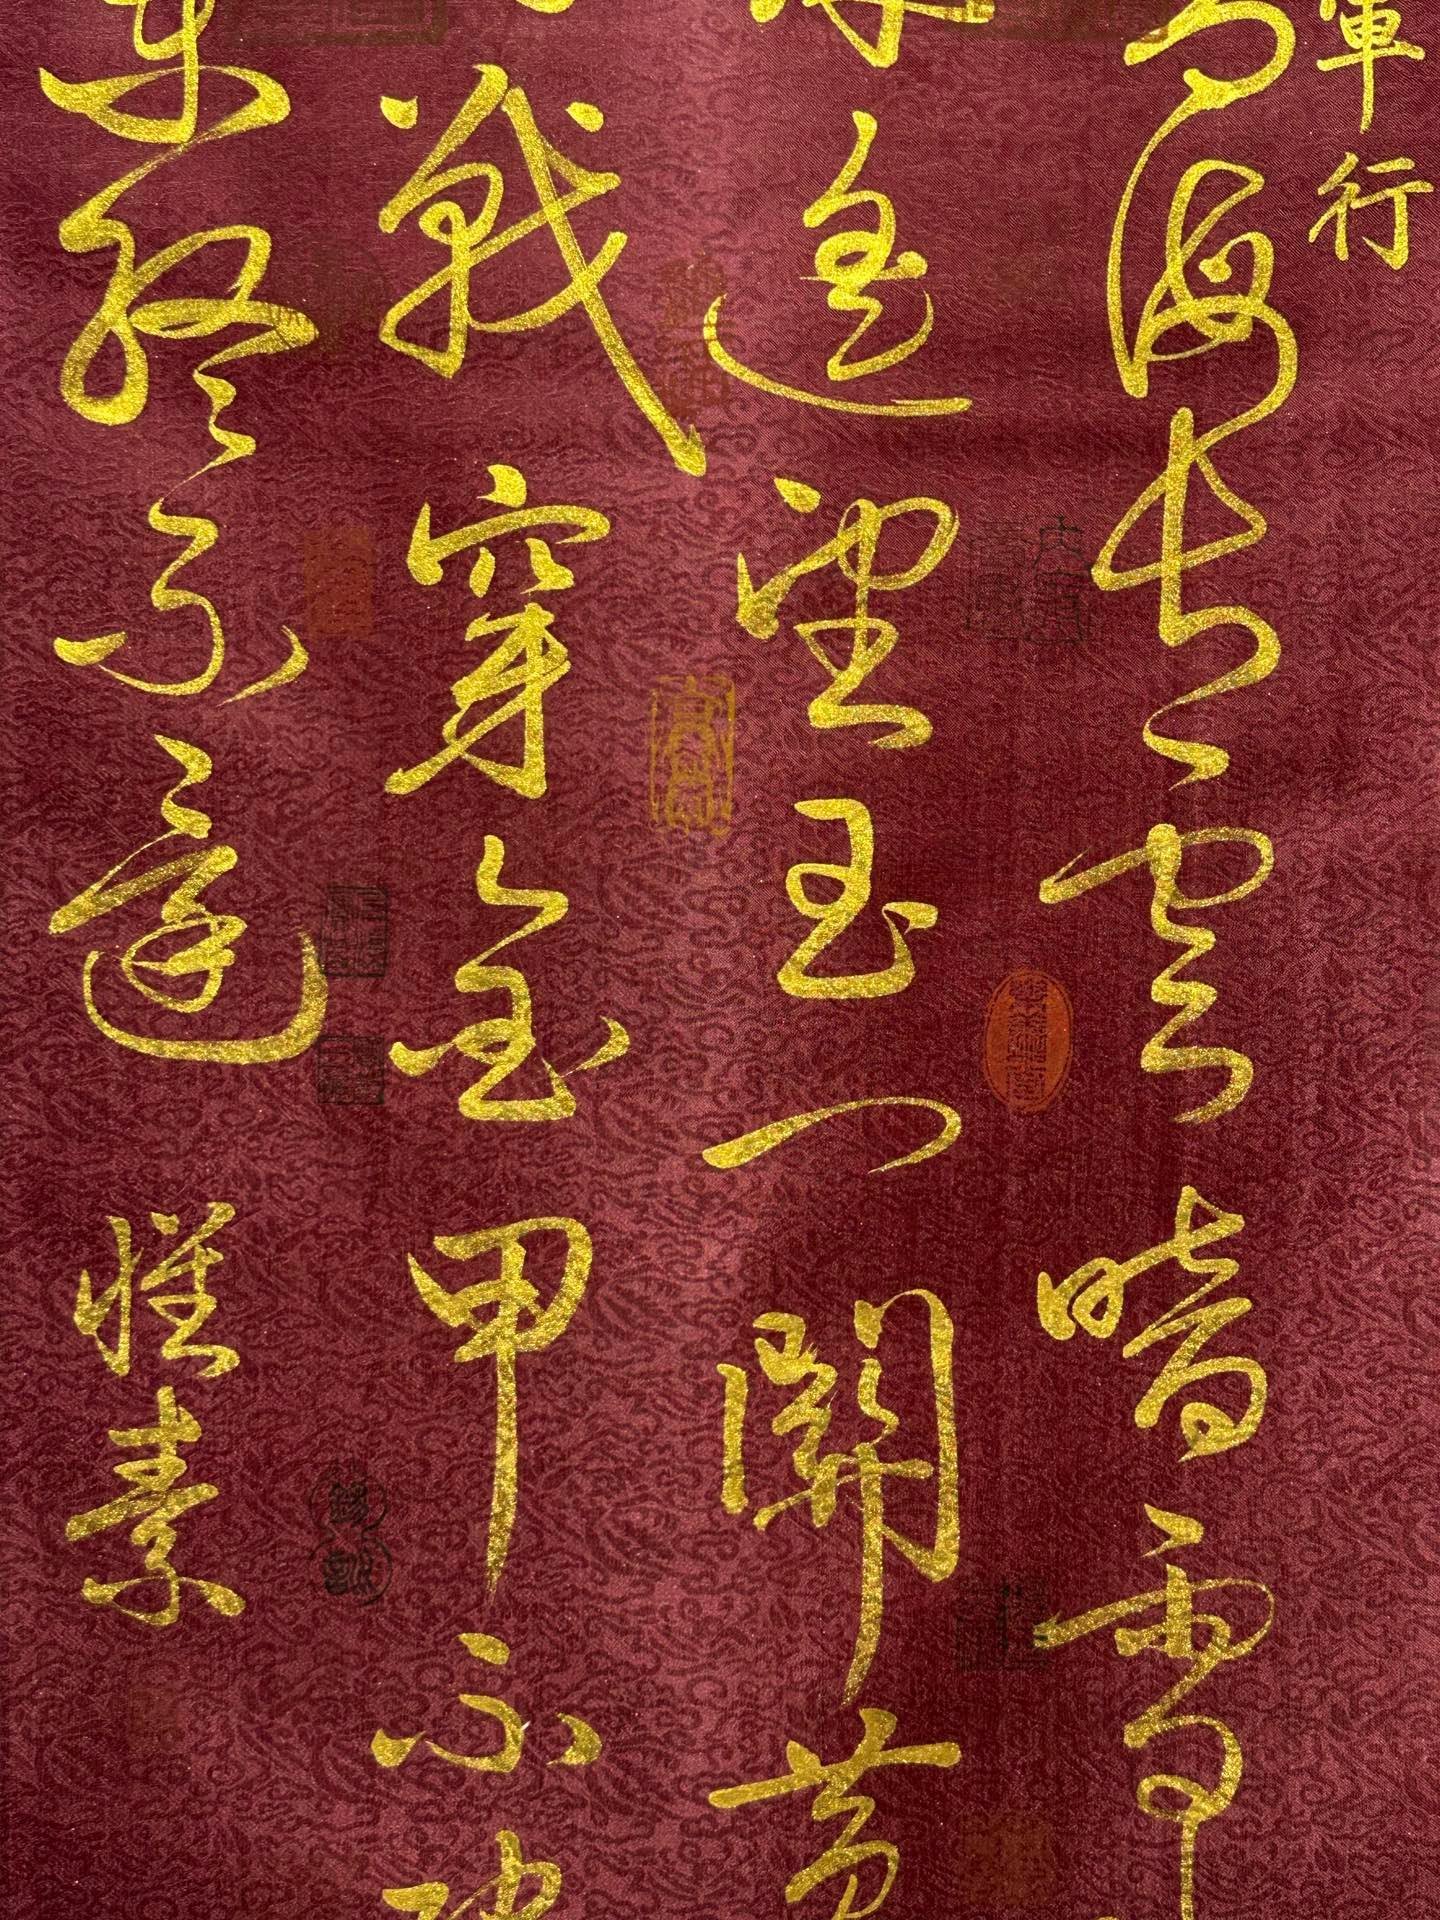 軍行
青海長雲暗雪
遙望玉門關黃
戰穿金甲不破
蘭終不還
懷素